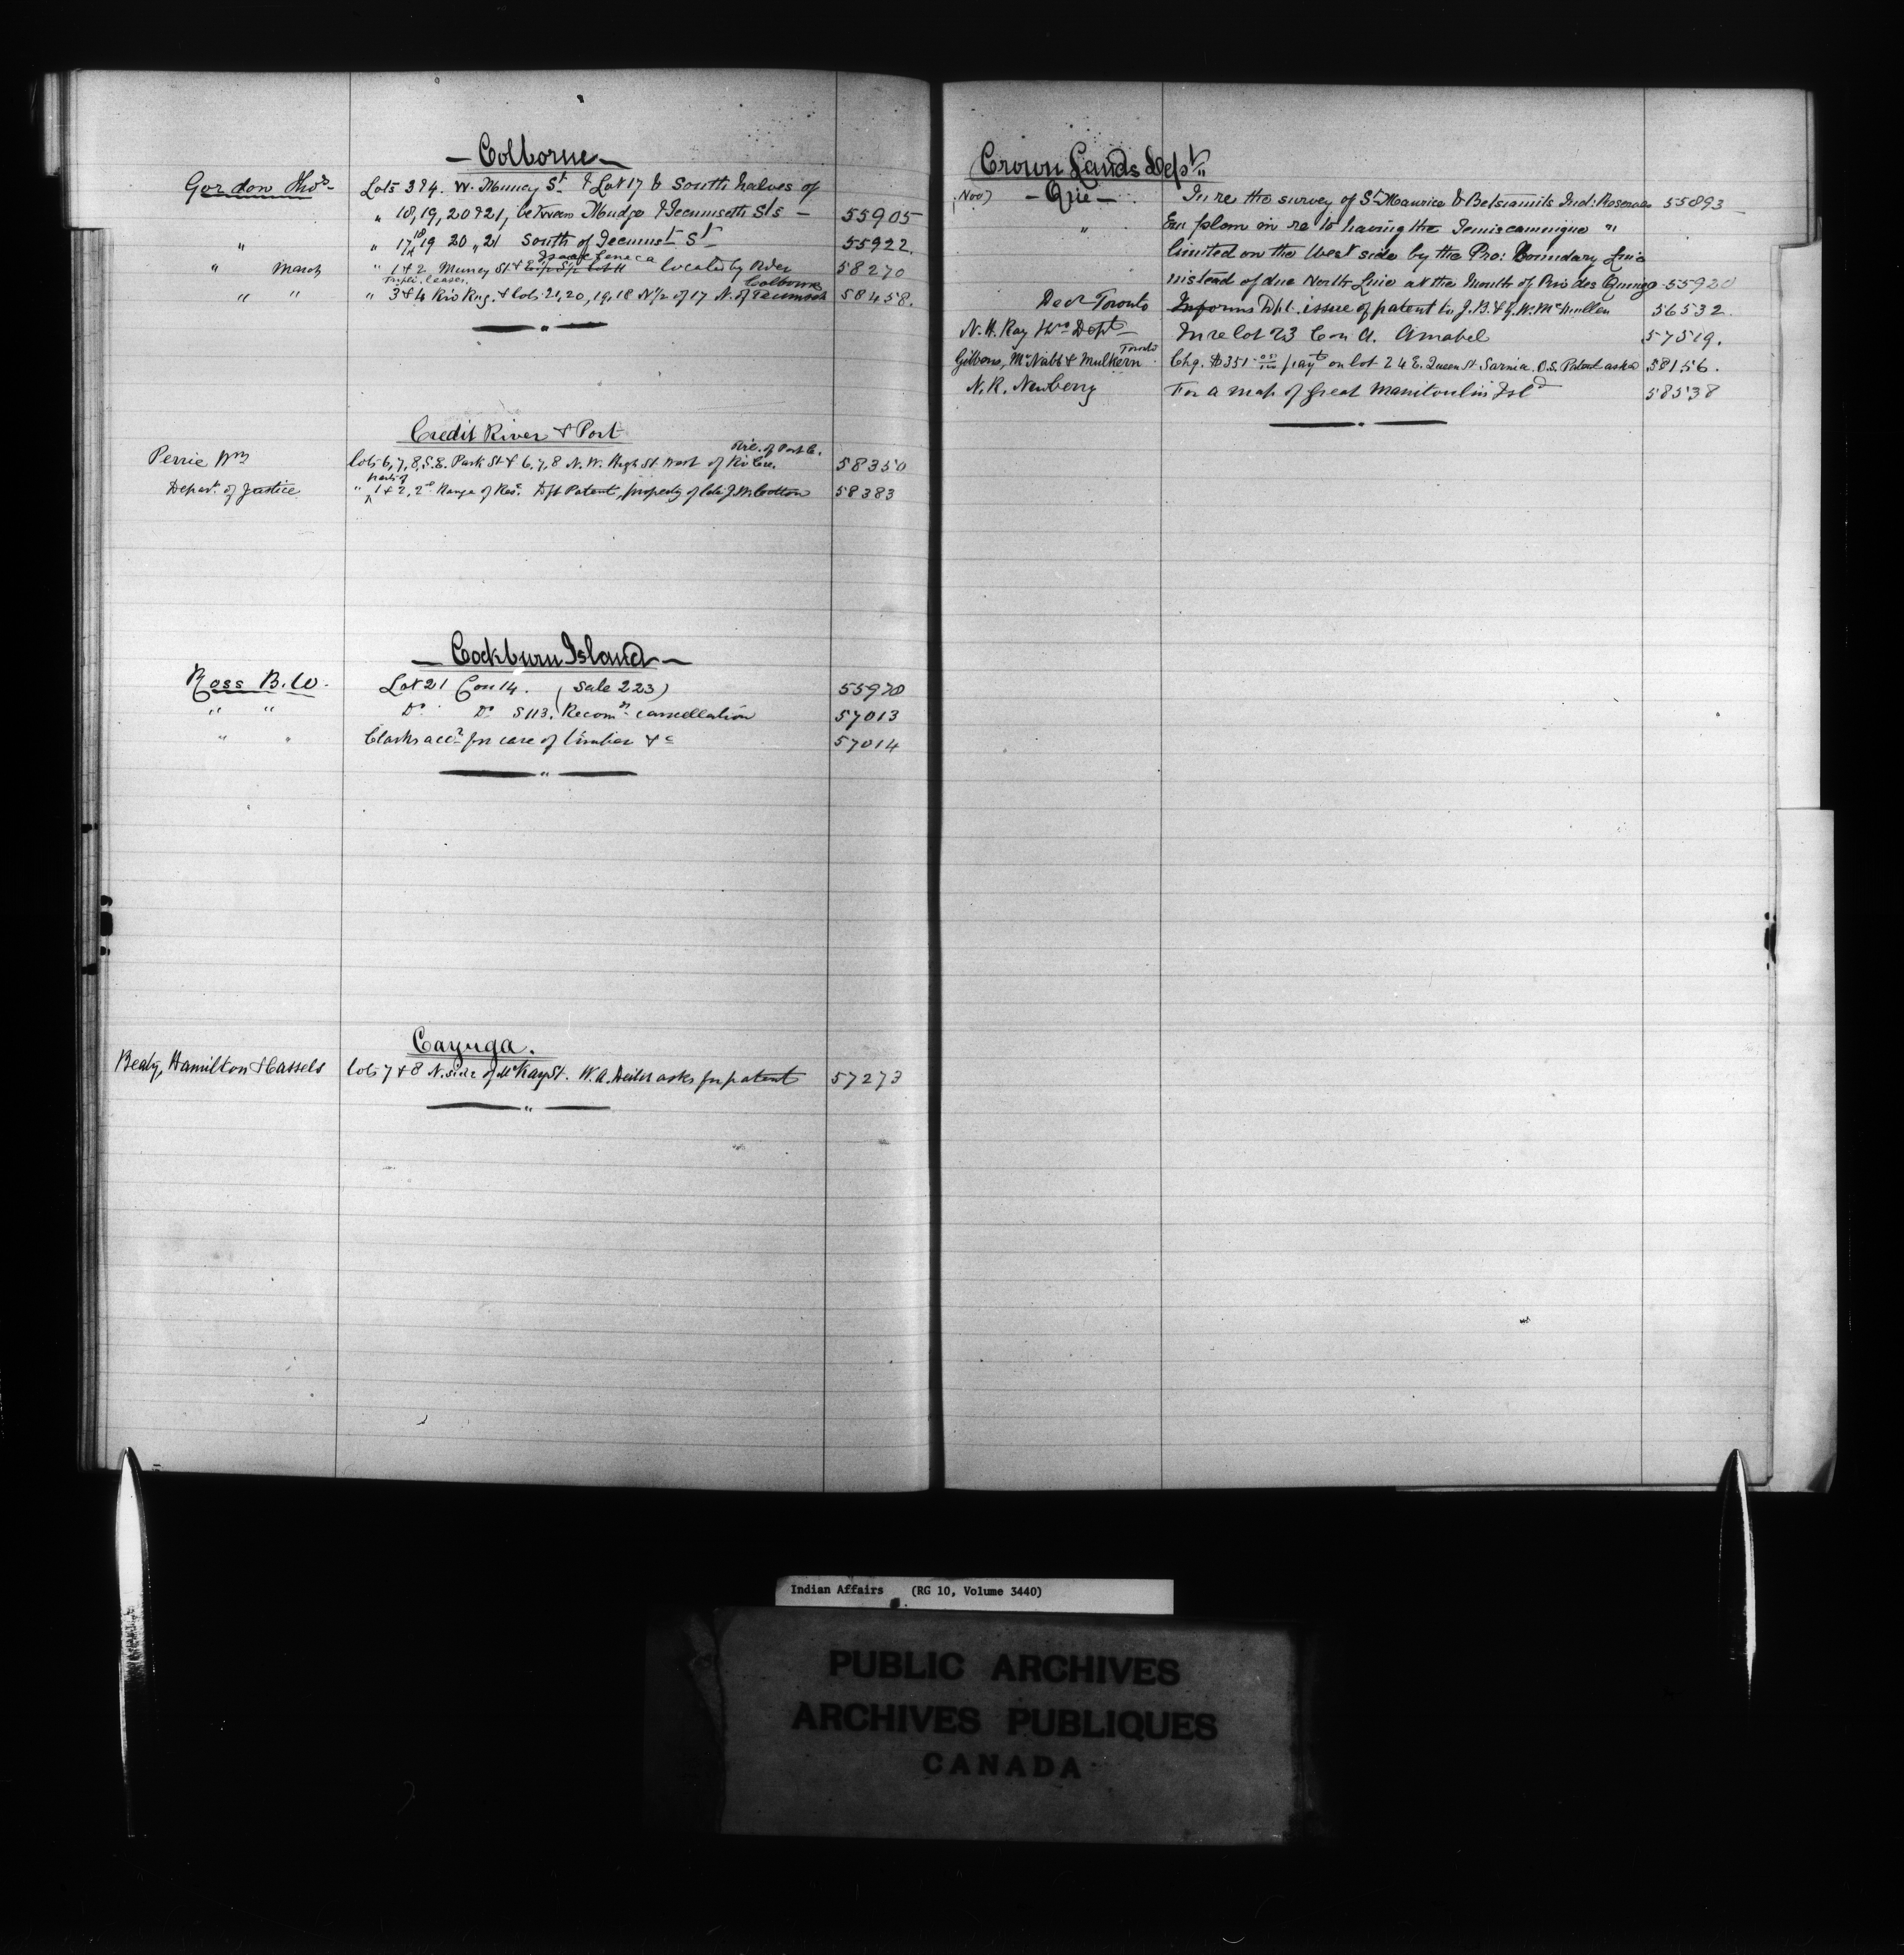 — Colborne —
Gordon Thos Lots 3 & 4. W. Muncy St & Lot 17 & South halves of
" 18, 19, 20 & 21, between Mudge & Tecumseth Sts — 55905
" " 17, 18 19 20 " 21 South of Tecumst St 55922.
Isaac Seneca
" March " 1 & 2 Muncy St & located by Order 58270
Tripli. leases. Colborne
" " " 3 & 4 Riv Rng. & lots 21, 20, 19, 18 N 1/2 of 17 N. of Tecumseh 58458.
Credit River & Port
of Port C.
Perrie Wm Lots 6, 7, 8, S.E. Park St & 6, 7, 8 N.W. High St west of Riv Cre. 58350
parts of
Depart. of Justice " 1 & 2, 2d Range of Res. Dft Patent, property of late J.W. Cotton 58383
— Cockburn Island —
Ross B.W. Lot 21 Con 14. (Sale 223) 55970
" " Do Do S 113. Recomds cancellation 57013
" " Clarks acct for care of timber &c 57014
Cayuga.
Beaty, Hamilton & Cassels Lots 7 & 8 N. side of McKay St. W.A. asks for patent 57273
Crown Lands Dept.
Nov) — Que — In re the survey of St Maurice & Betsiamits Ind: Reserves 55893
" in re to having the Temiscamingue "
limited on the West side by the Pro: Boundary Line
instead of due North Line at the Mouth of Riv des Quinze 55920
Decr Toronto Informs Dpt. issue of patent to J.B. & G.W. McMullen 56532.
N.H. Ray Dept In re lot 23 Con A. Amabel 57519.
Toronto
Gibbons, McNabb & Mulkern Chq. $351 payt on lot 24 E. Queen St Sarnia. O.S. Patent asked 58156.
N.R. Newberry For a map of Great Manitoulin Isld 58538
Indian Affairs (RG 10, Volume 3440)
PUBLIC ARCHIVES
ARCHIVES PUBLIQUES
CANADA